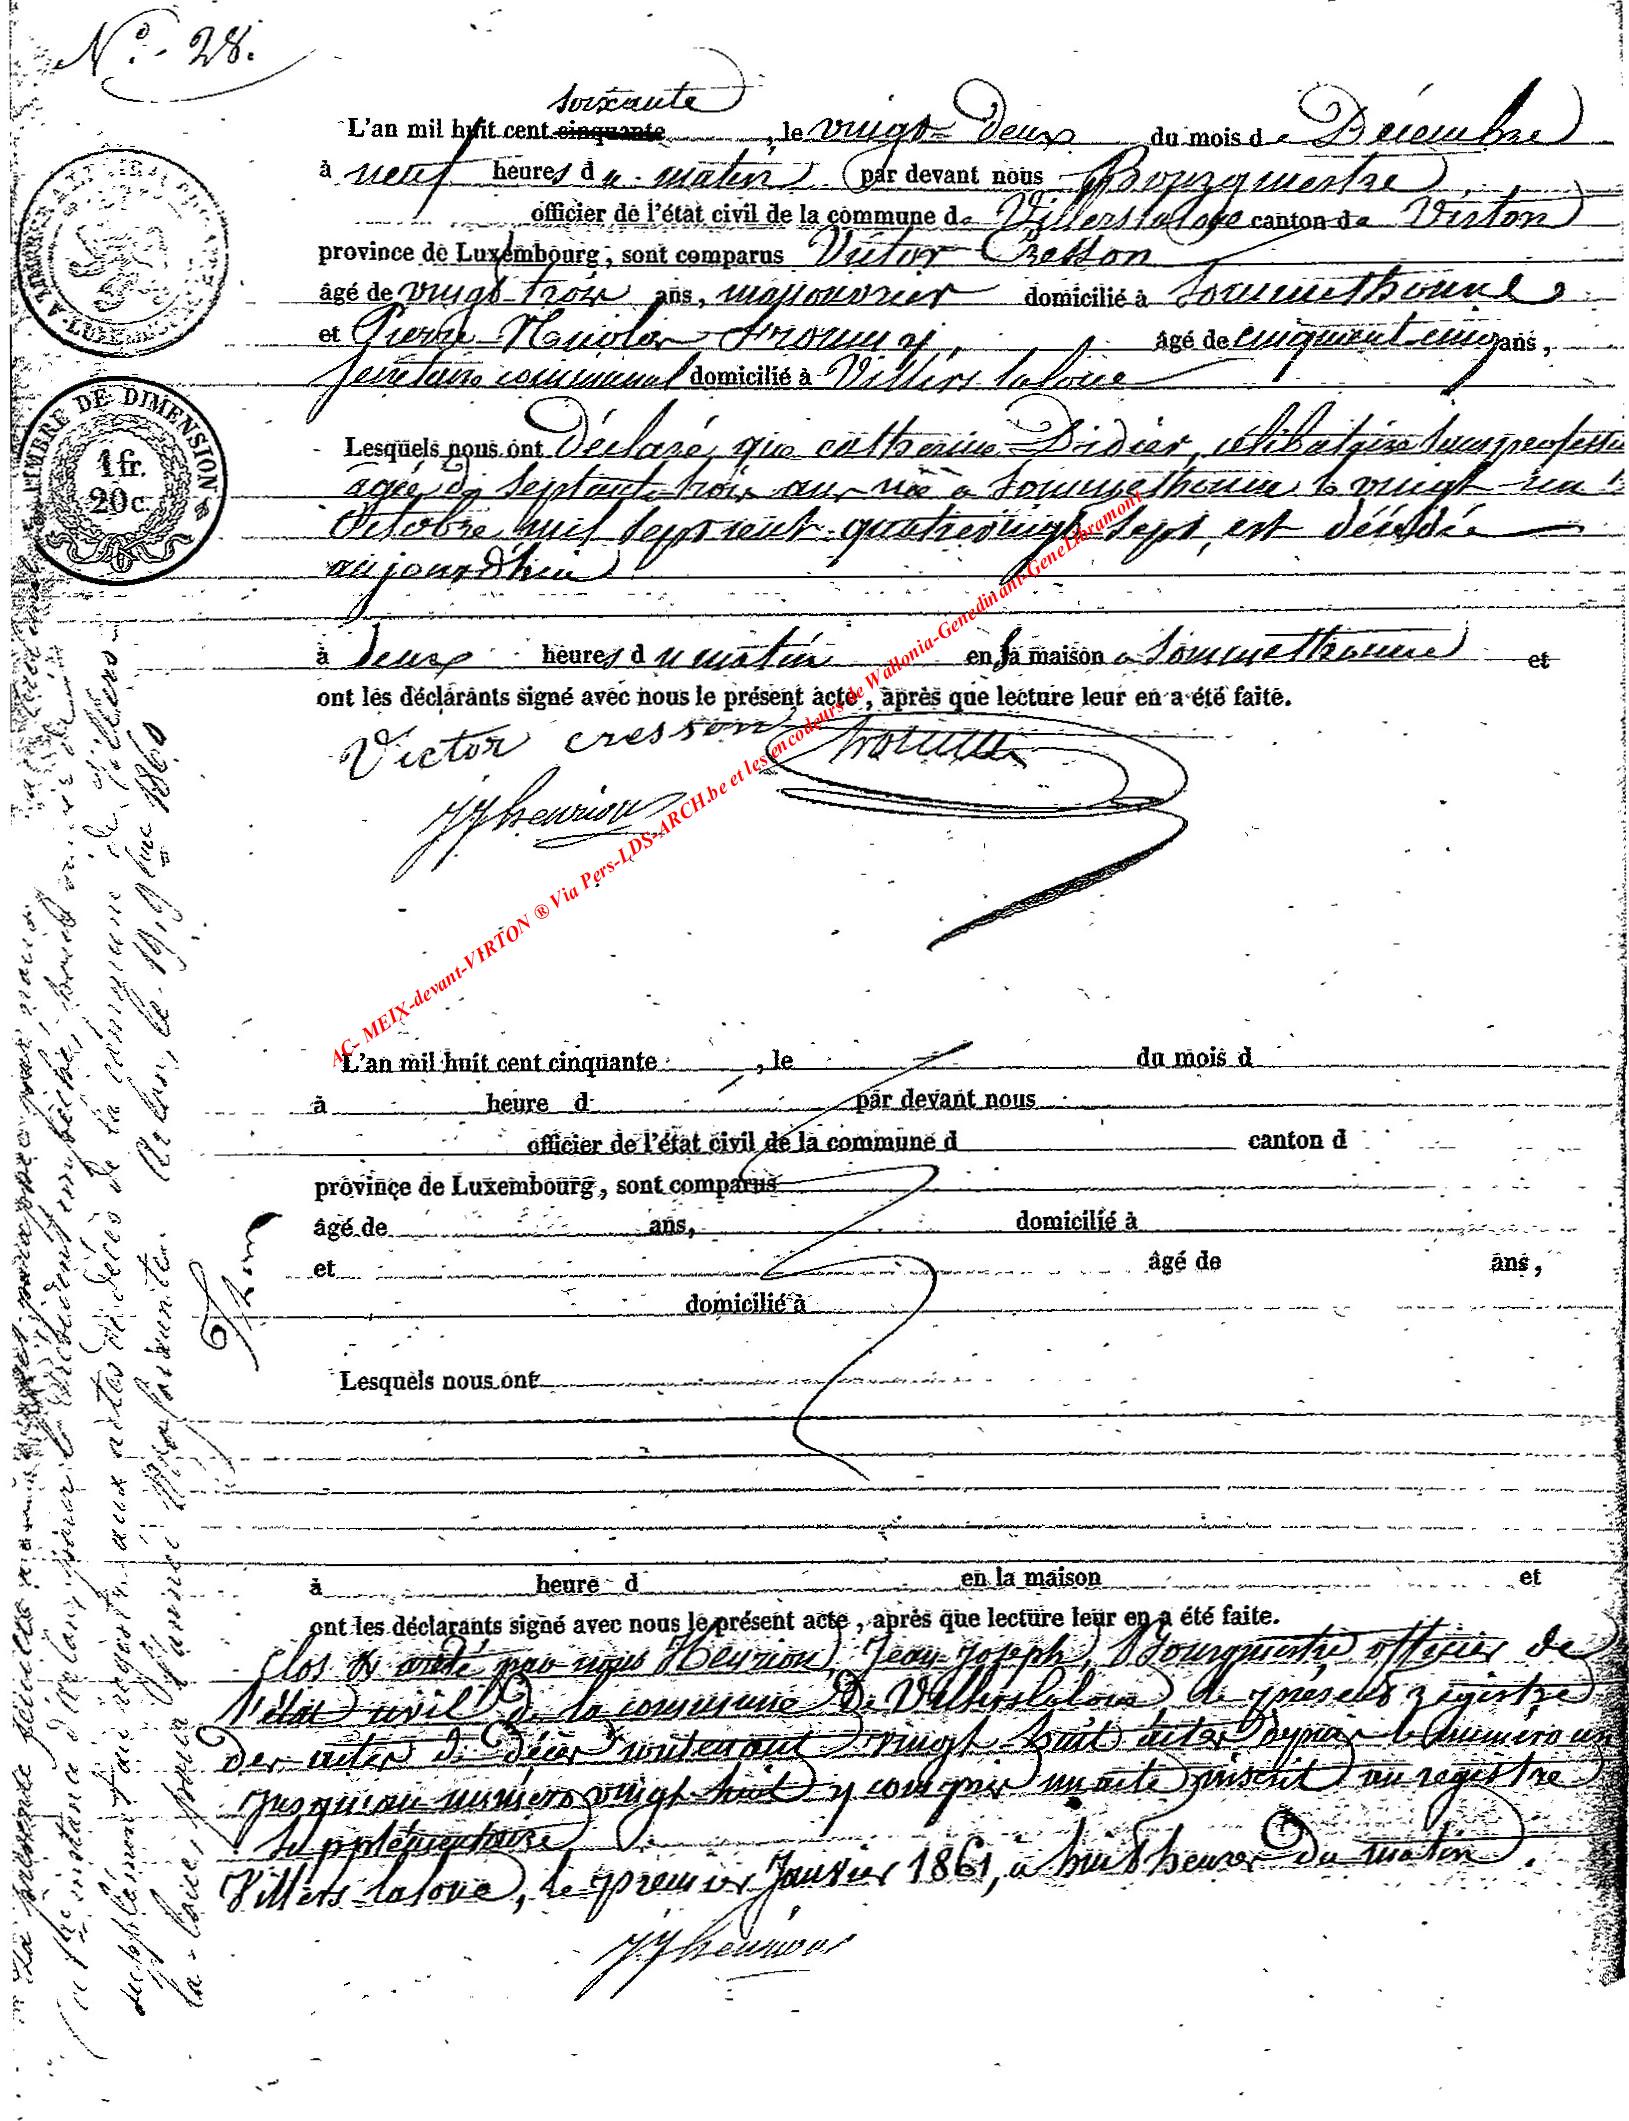 N.° - 28.
soixante
L'an mil huit cent cinquante, le vingt-deux du mois de Décembre
à neuf heures du matin par devant nous Bourgmestre
officier de l'état civil de la commune de Villerslaloue canton de Virton
province de Luxembourg, sont comparus Victor Cresson
âgé de vingt trois ans, domicilié à Sommethonne
et Pierre Nicolas âgé de cinquante-cinq ans,
secrétaire communal domicilié à Villers laloue
Lesquels nous ont déclaré que catherine Didier, célibataire sans professi
agée de septante trois ans née à Sommethonne le vingt
Octobre mil sept cent quatrevingt sept, est décédée
aujourd'hui
à deux heures du matin en sa maison à Sommethonne et
ont les déclarants signé avec nous le présent acte, après que lecture leur en a été faite.
Victor cresson
JJhenrion
TIMBRE DE DIMENSION
1 fr.
20 c.
AC- MEIX-devant-VIRTON ® Via Pers-LDS-ARCH.be et les encodeurs de Wallonia-Genedinant-GeneLibramont
L'an mil huit cent cinquante , le du mois d
à heure d par devant nous
officier de l'état civil de la commune d canton d
province de Luxembourg, sont comparus
âgé de ans, domicilié à
et âgé de ans,
domicilié à
Lesquels nous ont
à heure d en la maison et
ont les déclarants signé avec nous le présent acte, après que lecture leur en a été faite.
Clos & arrêté par nous Henrion, Jean Joseph, Bourgmestre officier de
l'état civil de la commune De Villerslaloue, le présent registre
des actes de Décès contenant vingt huit actes depuis le numéro un
jusqu'au numéro vingt-huit y compris un acte inscrit au registre
supplémentaire
Villers laloue, le premier Janvier 1861, à huit heures du matin.
JJhenrion
La présente feuille
de 1re instance d'Arlon, pour le Président empêché,
supplément au registre aux actes de décès de la commune de Villers
la-Loue, pour l'année Mil huit soixante. Arlon, le 19 9bre 1860